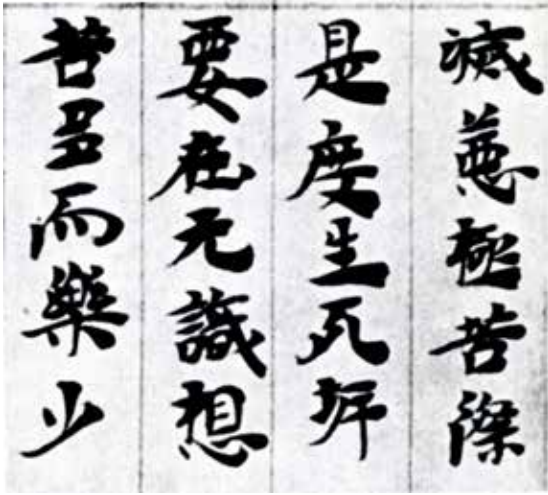 滅惡極苦際
是度生死
要在无識想
苦多而樂少